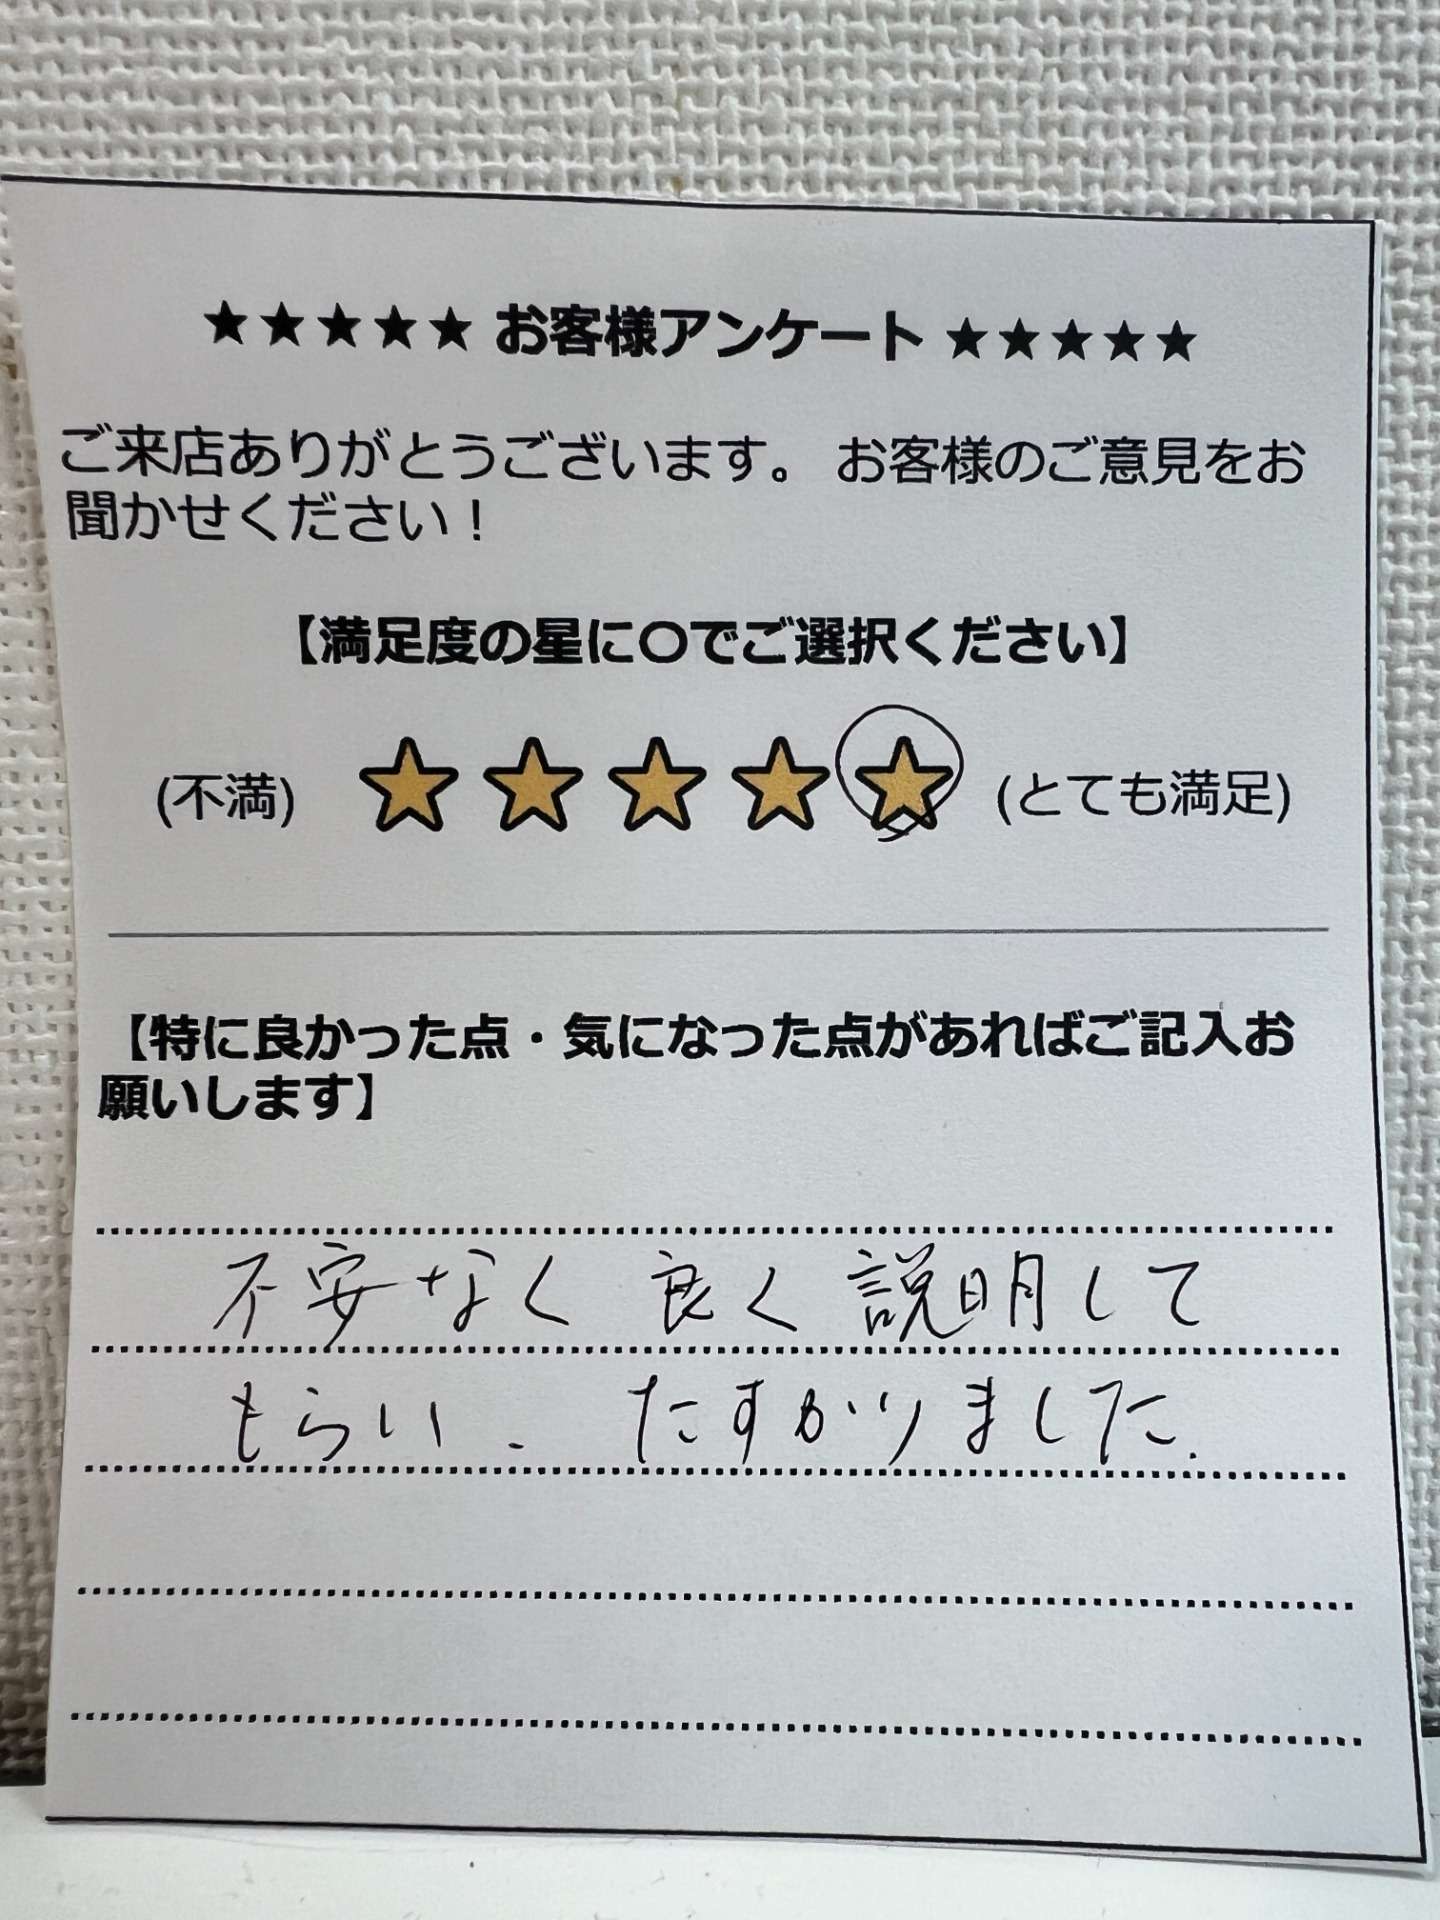 ★★★★★ お客様アンケート ★★★★★
ご来店ありがとうございます。 お客様のご意見をお
聞かせください！
【満足度の星に〇でご選択ください】
(不満) ★ ★ ★ ★ ★ (とても満足)
【特に良かった点・気になった点があればご記入お
願いします】
不安なく 良く 説明して
もらい、たすかりました.